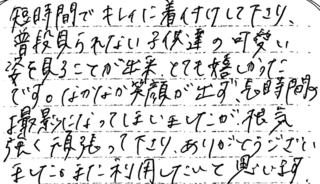 短時間でキレイに着付けして下さり、
普段見られない子供達の可愛い
姿を見ることが出来とても嬉しかった
です。なかなか笑顔が出ず長時間の
撮影になってしまいましたが、根気
強く頑張って下さり、ありがとうござい
ました。また利用したいと思います。